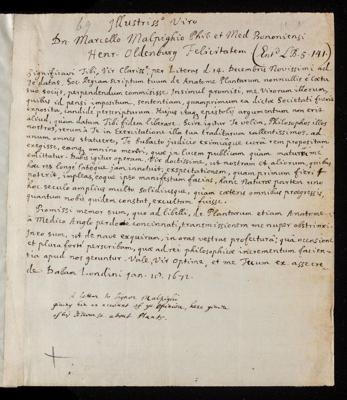 69
Illustriss.o Viro
Dn. Marcello Malpighio Phil. et Med Bononiensi
Henr. Oldenburg Felicitatem
(Ent.d LB. 5. 141.)
Significavi Tibi, Vir Clariss.e, per Literas d. 14. Decembris Novissimi ad
Te datas, Soc. Regiam scriptum tuum de Anatome Plantarum nonnullis è coetu
suo sociis, perpendendum commisisse. Insimul promisi, me Virorum illorum,
quibus id pensi impositum, sententiam, quamprimum ea dictae Societati fuerit
exposita, candide perscripturum. Hujus itaq epistolii argumentum non erit
aliud, quam datam Tibi fidem liberare. Scias igitur Te velim, Philosophos illos
nostros, rerum à Te in Exercitatione illa tua traditarum callentissimos, ad
unum omnes statuere, Te subacto judicio eximiaque cura rem propositam
exegisse, eamq omnino mereri, quae in lucem publicam quam mature
emittatur. Tuâ igitur operam, Vir doctissime, ut nostram et aliorum, quibus
hae res longe latéque jam innotuit, exspectationem, quam primum fieri
poterit, impleas, eoque ipso manifestum facias, hanc Naturae partem uno
hoc seculo amplius multo solidiusque, quam coeteris omnibus progressis,
quantum nobis quidem constet, excultam fuisse.
Promissi memor sum, quo ad libelli, de Plantarum etiam Anatome
à Medico Anglo perdocte concinnati, transmissionem me nuper obstrinxi.
Jnero sum, ut de nave exquiram, in oras vestras profectura; quâ occasione
et plura forte perscribam, quae ad rei philosophicae incrementum facientia
apud nos geruntur. Vale, Vir Optime, et me Tuum ex asse crede.
Dabam Londini Jan. 10. 1672.
A letter to Signor Malpighi
giving him an account of ye opinion, here given
of his Discourse about Plants.